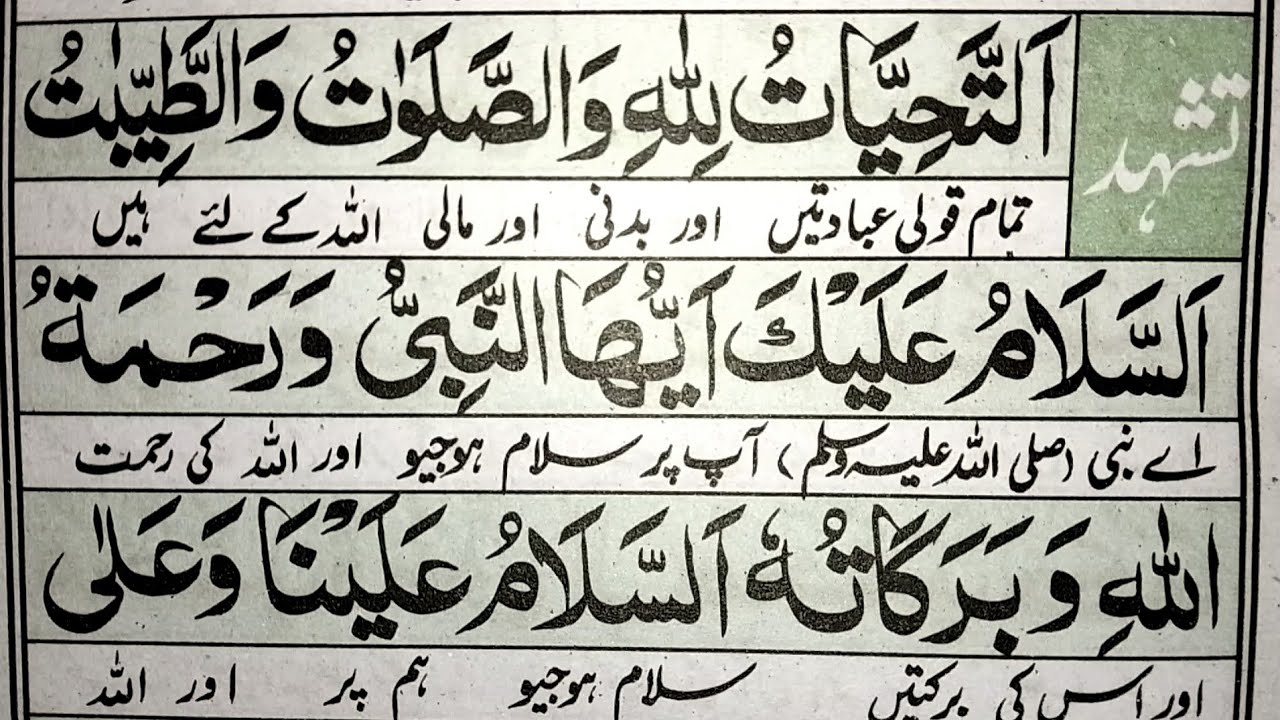 تشہد
اَلتَّحِيَّاتُ لِلّٰهِ وَالصَّلَوٰتُ وَالطَّيِّبٰتُ
تمام قولی عبادتیں اور بدنی اور مالی اللہ کے لئے ہیں
اَلسَّلَامُ عَلَيْكَ اَيُّهَا النَّبِىُّ وَرَحْمَةُ
اے نبی (صلی اللہ علیہ وسلم) آپ پر سلام ہوجیو اور اللہ کی رحمت
اللّٰهِ وَبَرَكَاتُهٗ اَلسَّلَامُ عَلَيْنَا وَعَلٰى
اور اس کی برکتیں سلام ہوجیو ہم پر اور اللہ